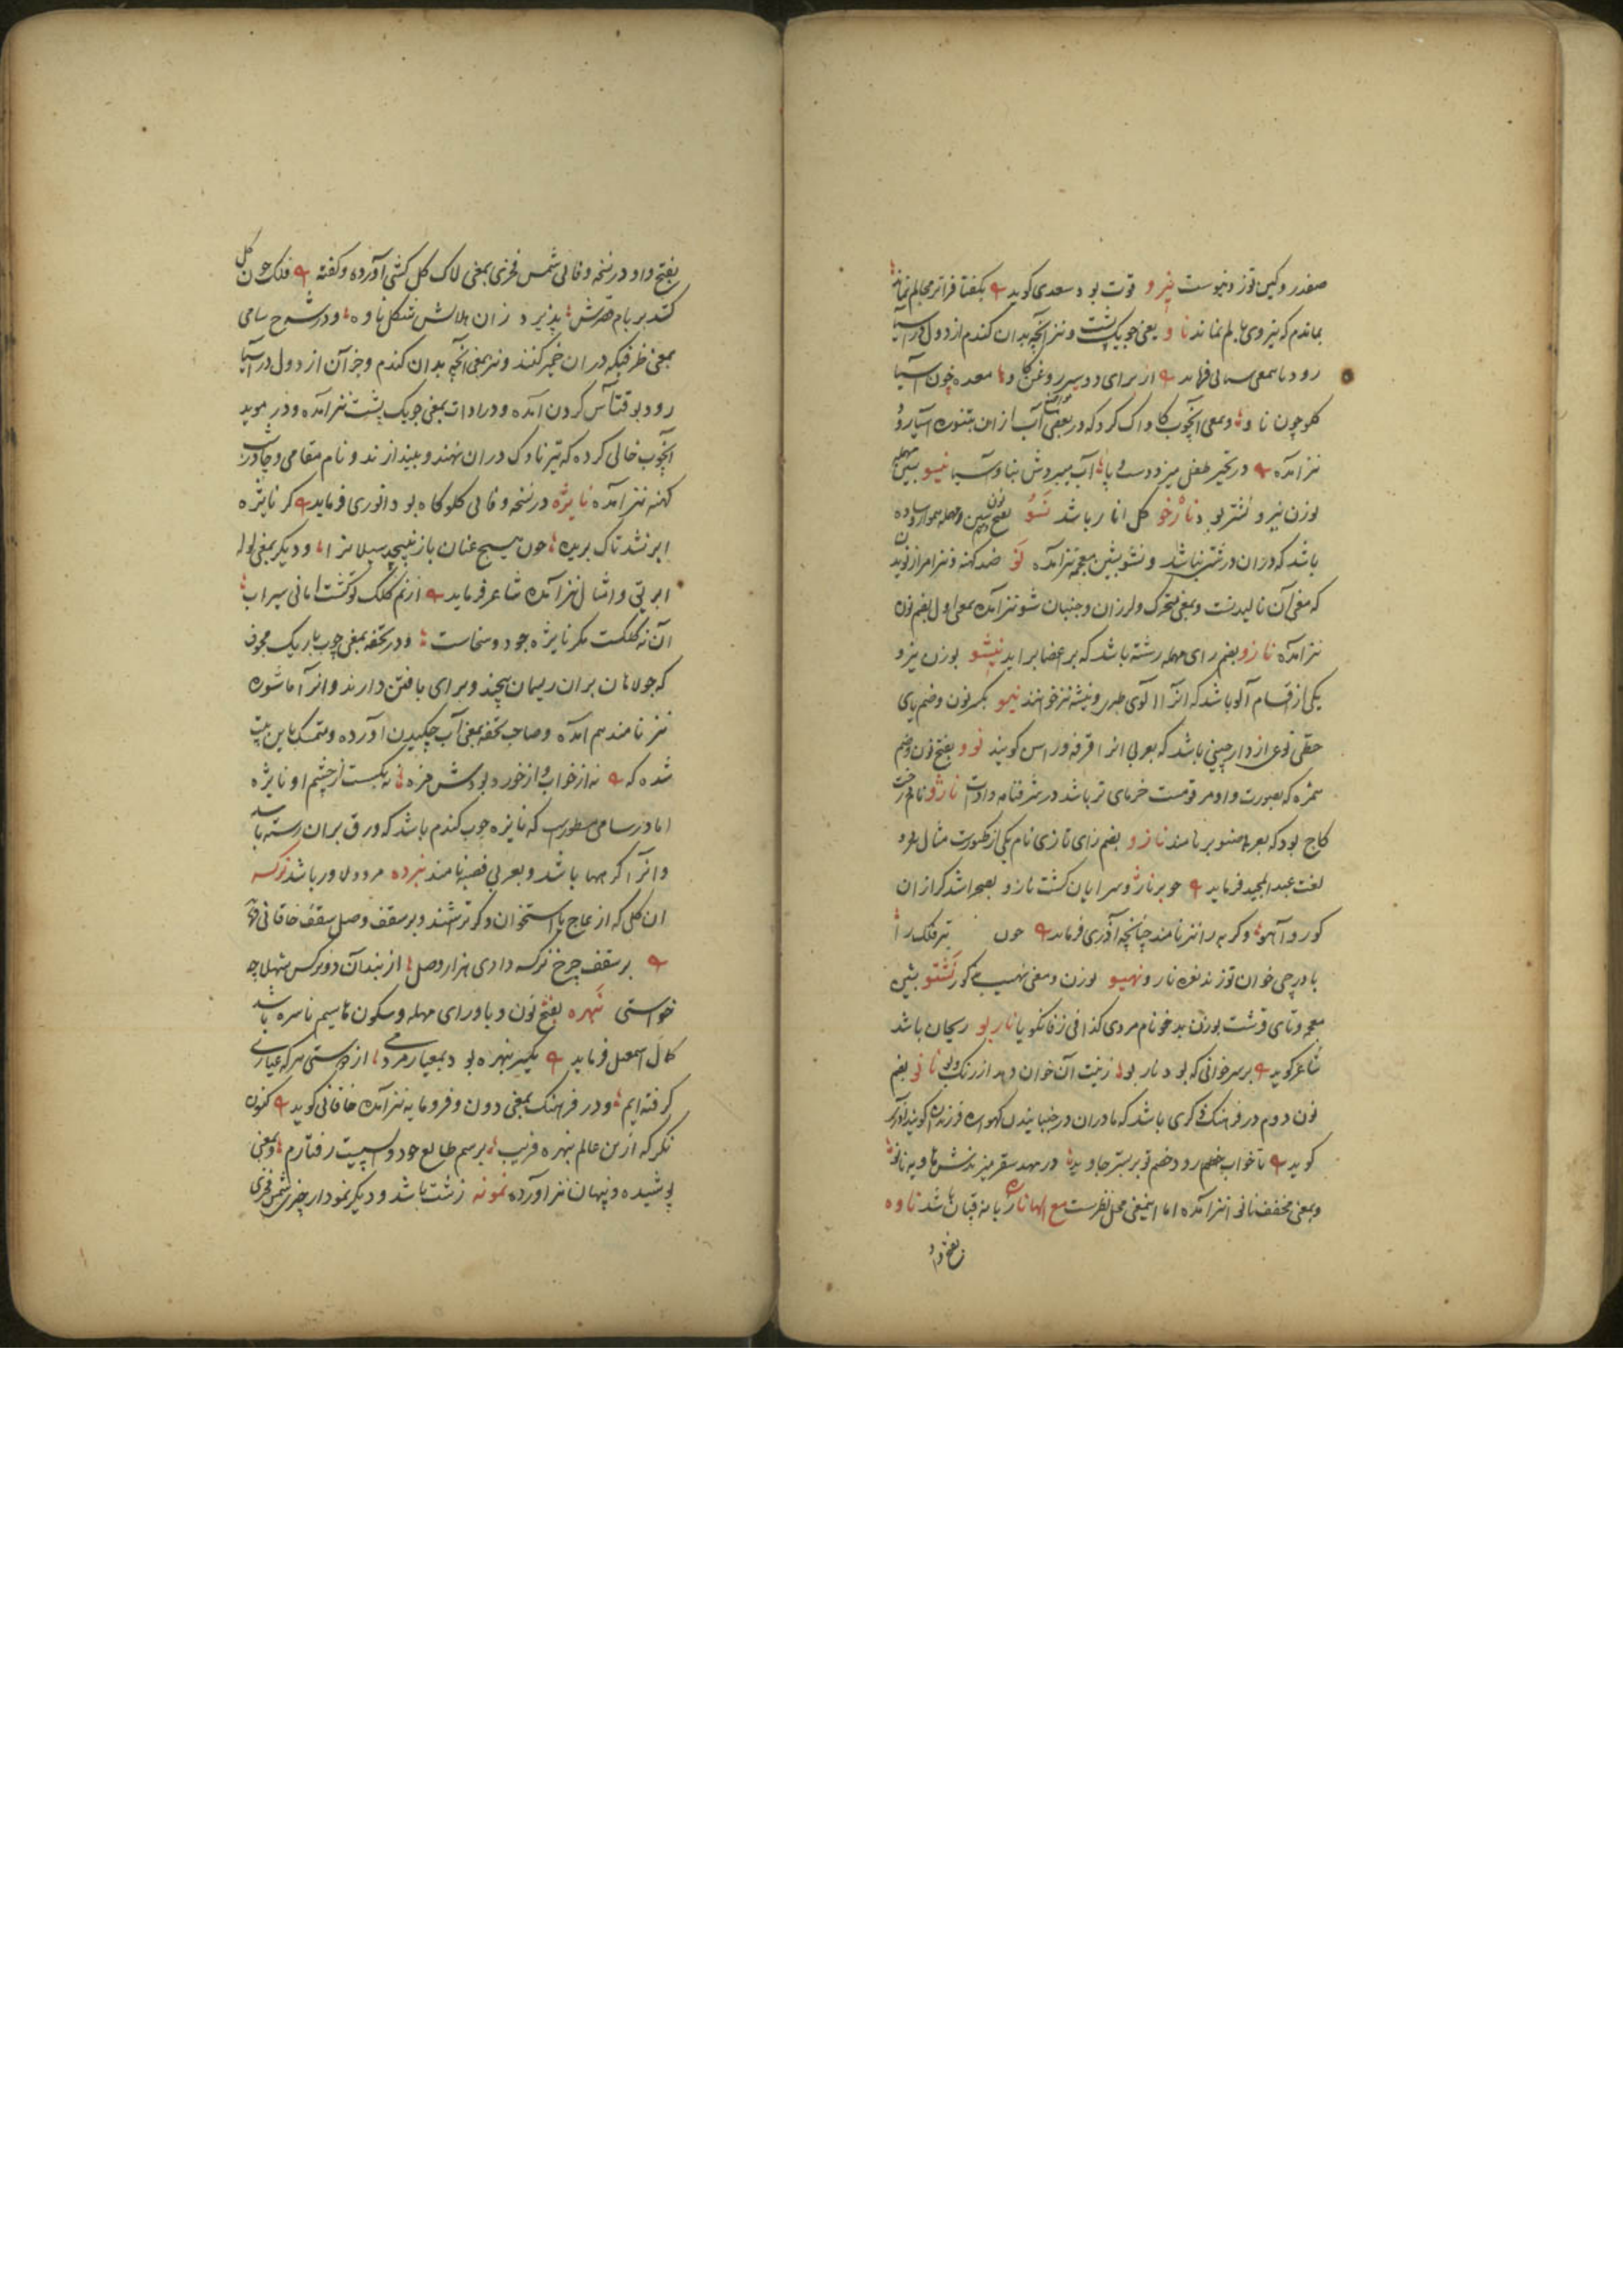 صفدر و کین توز دنیوست نیرو قوت بود سعدی کوید بکفتا فراتر مجالم نماند
بماندم که نیروی بالم نماند ناو یعنی جویک پشت و نیز آنچه بدان کندم از دول در آسیا
رود بمعنی فرماید از برای دو سیر روغن کاو معده چون آسیا
کلو چون ناو و بمعنی آنچوب کاواک کرد که در بعضی آب ازان بتنوره آسیا رود
نیز آمده در تحیر طفل میزد دست و پا آب میبردش بناو آسیا نیسو بسین مهمله
بوزن نیرو نشتر بود نارخو کل انار باشد نسو بفتح نون و سین مهمله هموار و ساده
باشد که دران درشتی نباشد و نشو بشین معجمه نیز آمده نو ضد کهنه و نیز امر از نویدن
که معنی آن نالیدنست و بمعنی متحرک و لرزان و جنبان شو نیز آمده بمعنی اول بضم نون
نیز آمده نارو بضم رای مهمله رشته باشد که بر اعضا براید نیشو بوزن نیرو
یکی از اقسام آلو باشد که انرا آلوی طبری و نیشه نیز خوانند نیمو بکسر نون و ضم یای
حطی نوعی از دارچینی باشد که بعربی انرا قرفه کویند نوو بفتح نون و ضم
همزه که بصورت واو مرقومست خرمای تر باشد در شرفنامه و ادات ناژو نام درخت
کاج بود که بعربی صنوبر نامند نازو بضم زای تازی نام یکی
لغت عبدالمجید فرماید چو بر ناژو سرایان کشت نازو بصحرا شد کرازان
کور و آهو و کربه را نیز نامند چنانچه آذری فرماید چون تیر فلک را
باورچی خوان تو زند نعره نارو نهیو بوزن و معنی نهیب مذکور نشتو بشین
معجمه و تای قرشت بوزن بدخو نام مردی کذا فی زفانکویا ناربو ریحان باشد
شاعر کوید بر سر خوانی که بود ناربو زینت آن خوان دهد از رنک و بو نانو بضم
نون دوم در فرهنک ذکری باشد که مادران در جنبانیدن کهواره فرزندان کویند آذری
کوید تا خواب خصم رود خصم تو بر بستر جاوید در مهد سقر میزندش هاویه نانو
و بمعنی مخفف نانو نیز آمده اما اینمعنی محل نظرست مع الها ناره زبانه قپان باشد ناوه
بفتح واو
بفتح واو در نسخه وفائی شمس فخری بمعنی لاک کل کشی آورده و کفته فلک چون کل
کشد بر بام قصرش پذیرد زان هلالش شکل ناوه و در شرح سامی
بمعنی ظرفیکه دران خمیر کنند و نیز بمعنی آنچه بدان کندم و جز آن از دول در آسیا
رود بوقت آس کردن آمده و در ادات بمعنی جویک پشت نیز آمده و در موید
آنچوب خالی کرده که تیر ناوک دران نهند و بیندازند و نام مقامی و چادر شب
کهنه نیز آمده نایژه در نسخه وفائی کلوکاه بود و انوری فرماید کر نایژه
ابر نشد تاک بریده چون هیچ عنان باز نپیچد سیلانرا و دیکر بمعنی لوله
ابریق و امثال آن نیز آمده شاعر فرماید از نم کلک تو کشت امانی سیراب
آن نه کلکست مکر نایژه جود و سخاست و در تحفه بمعنی چوب باریک مجوف
که جولاهان بران ریسمان پیچند و برای بافتن دارند و انرا ماشوره
نیز نامند هم آمده و صاحب تحفه بمعنی آب چکیدن آورده و متمسک باین بیت
شده که نه از خواب و از خورد بودش مزه نه بکسست از چشم او نایژه
اما در سامی مسطورست که نایژه چوب کندم باشد که ورق بران رسته باشد
و انرا کرهها باشد و بعربی قصبه نامند نبرده مرد دلاور باشد نرکسه
ان کلی که از عاج یا استخوان و کر تراشند و بر سقف وصل سقف خاقانی
بر سقف چرخ نرکسه داری هزار وصل از بند آن دو نرکس شهلا چه
خواستی نبهره بفتح نون و با و رای مهمله و سکون ها سیم ناسره باشد
کمال اسمعیل فرماید یکسر نبهره بود بمعیار مردمی از دوستی هر که عیاری
کرفته ایم و در فرهنک بمعنی دون و فرومایه نیز آمده خاقانی کوید کنون
نکر که ازین عالم نبهره فریب برسم طالع خود واپسیست رفتارم و بمعنی
پوشیده و پنهان نیز آورده نمونه زشت باشد و دیکر نمودار چیزی شمس فخری